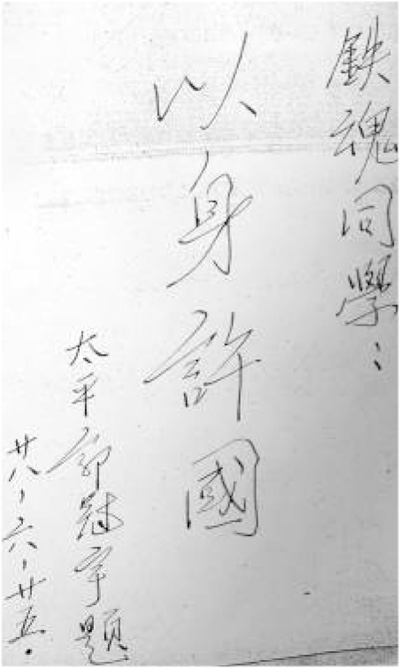 鉄魂同學：
以身許國
太平郭冠宇題
廿八、六、廿五．